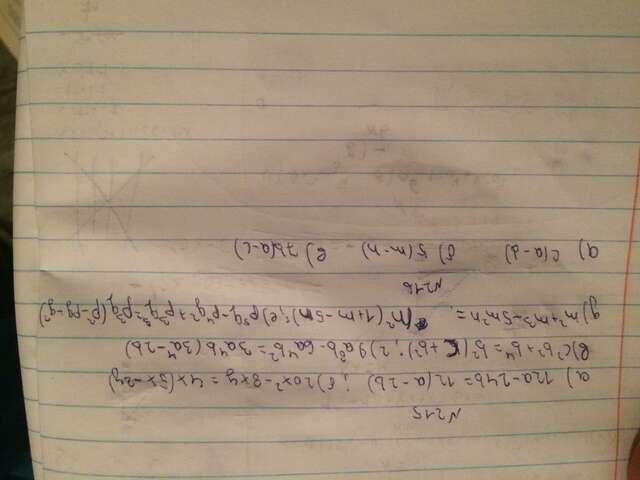 №215
а) 12a-24b=12(a-2b); б) 20x²-8xy=4x(5x-2y)
в) c²b²+b⁴=b²(c²+b²); г) 9a⁸b-6a⁴b²=3a⁴b(3a⁴-2b)
д) m²+m³-5m²n= m²(1+m-5n); е)
№216
а) c(a-d) б) 5(m-n) в) 7b(a-c)